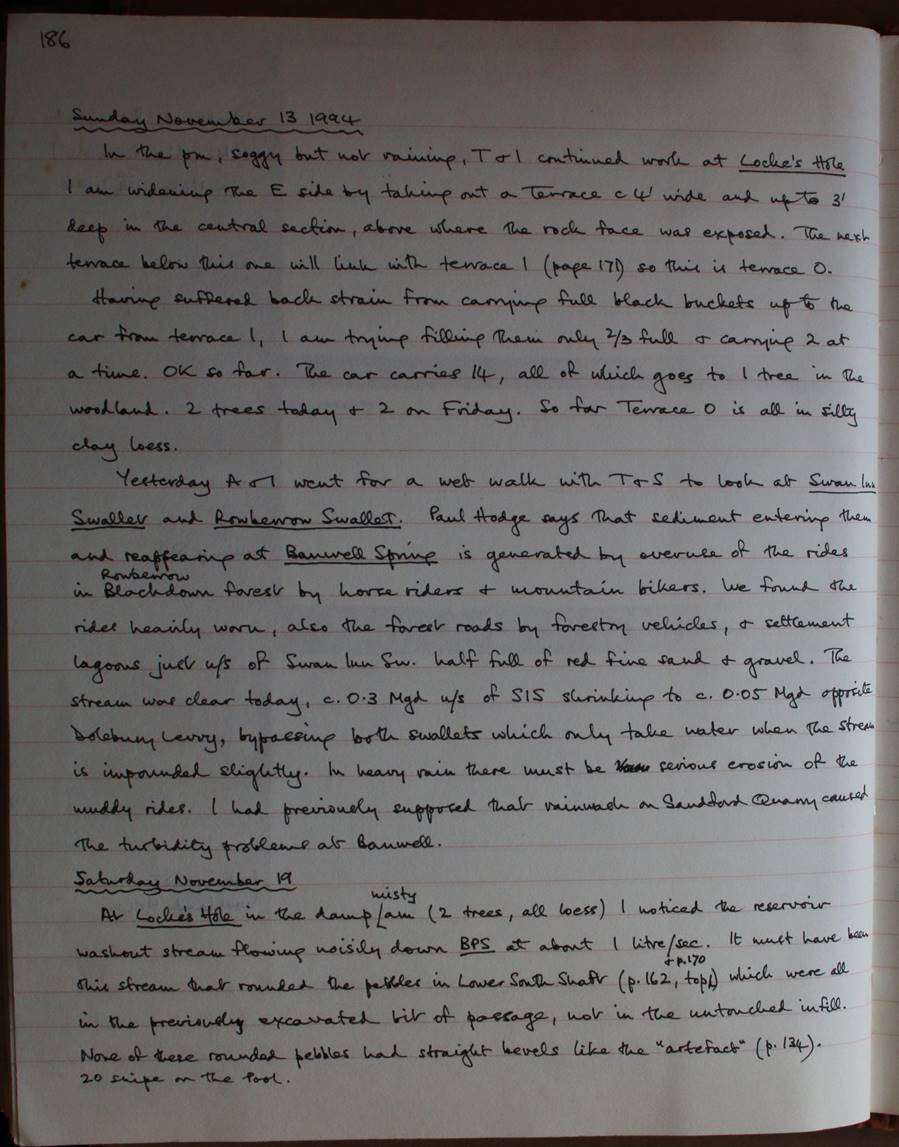 186
Sunday November 13 1994
In the pm, soggy but not raining, T & I continued work at Locke's Hole
I am widening the E side by taking out a Terrace c 4' wide and up to 3'
deep in the central section, above where the rock face was exposed. The next
terrace below this one will link with terrace 1 (page 171) so this is terrace 0.
Having suffered back strain from carrying full black buckets up to the
car from terrace 1, I am trying filling them only 2/3 full & carrying 2 at
a time. OK so far. The car carries 14, all of which goes to 1 tree in the
woodland. 2 trees today & 2 on Friday. So far Terrace 0 is all in silty
clay loess.
Yesterday A & I went for a wet walk with T & S to look at Swan Inn
Swallet and Rowberrow Swallet. Paul Hodge says that sediment entering them
and reappearing at Banwell Spring is generated by overuse of the rides
Rowberrow
in Blackdown forest by horse riders & mountain bikers. We found the
rides heavily worn, also the forest roads by forestry vehicles, & settlement
lagoons just u/s of Swan Inn Sw. half full of red fine sand & gravel. The
stream was clear today, c. 0.3 Mgd u/s of SIS shrinking to c. 0.05 Mgd opposite
Dolebury Levvy, bypassing both swallets which only take water when the stream
is impounded slightly. In heavy rain there must be serious erosion of the
muddy rides. I had previously supposed that rainwash on Sandford Quarry caused
the turbidity problems at Banwell.
Saturday November 19
misty
At Locke's Hole in the damp am (2 trees, all loess) I noticed the reservoir
washout stream flowing noisily down BPS at about 1 litre/sec. It must have been
& p.170
this stream that rounded the pebbles in Lower South Shaft (p.162, top) which were all
in the previously excavated bit of passage, not in the untouched infill.
None of these rounded pebbles had straight bevels like the "artefact" (p.134).
20 snipe on the Pool.